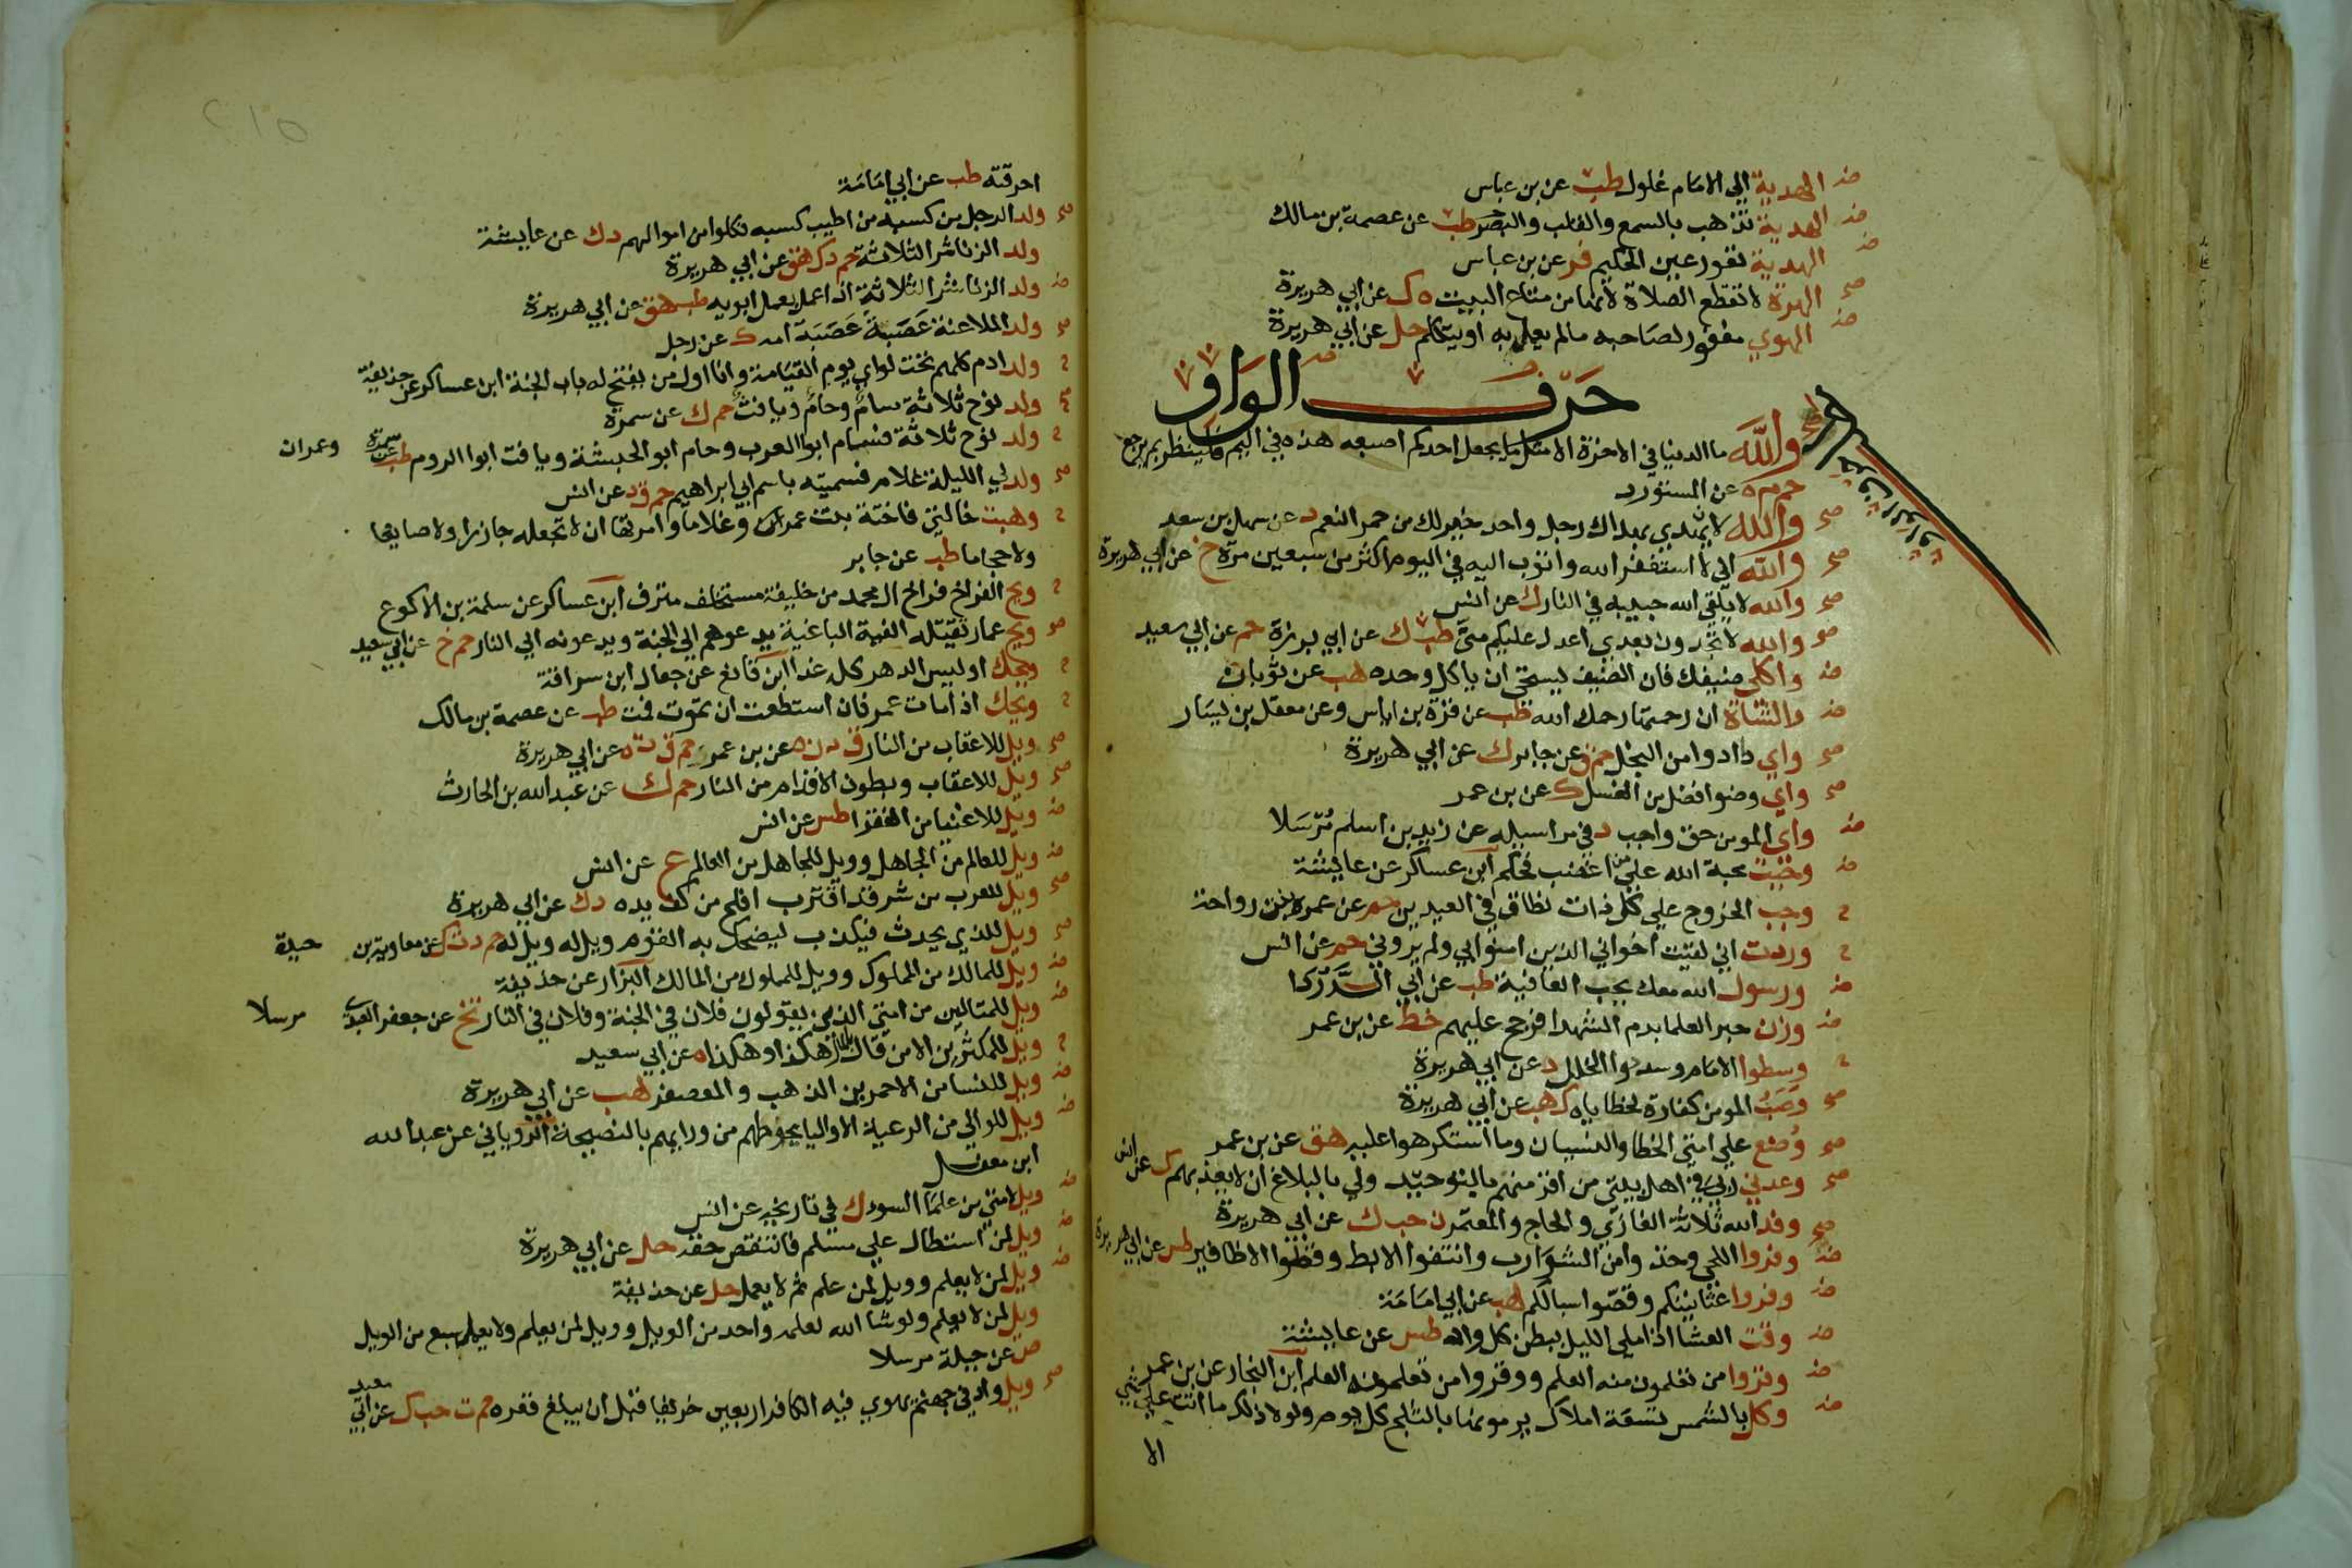 ض الهدية الي الامام غلول طب عن بن عباس
ض الهدية تذهب بالسمع والقلب والبصر طب عن عصمة بن مالك
ض الهدية تعور عين الحكيم فر عن بن عباس
صح الهرة لا تقطع الصلاة لانها من متاع البيت ه ك عن ابي هريرة
ض الهوي مغفور لصاحبه مالم يعمل به او يتكلم حل عن ابي هريرة
حرف الواو
والله ما الدنيا في الاخرة الا مثل ما يجعل احدكم اصبعه هذه في اليم فلينظر بم يرجع
حم م ه عن المستورد
صح والله لان يهدي بهداك رجل واحد خير لك من حمر النعم د عن سهل بن سعد
صح والله اني لا استغفر الله واتوب اليه في اليوم اكثر من سبعين مرة خ عن ابي هريرة
صح والله لا يلقي الله حبيبه في النار ك عن انس
صح والله لا تجدون بعدي اعدل عليكم مني طب ك عن ابي برزة حم عن ابي سعيد
ض واكلي ضيفك فان الضيف ليستحي ان ياكل وحده هب عن ثوبان
ض والشاة ان رحمتها رحمك الله طب عن قرة بن اياس وعن معقل بن يسار
صح واي دا دوا من البخل حم ق عن جابر ك عن ابي هريرة
صح واي وضوا افضل من الغسل ك عن بن عمر
ض واي المومن حق واجب د في مراسيله عن زيد بن اسلم مرسلا
ض وجبت محبة الله علي من اغضب فحلم ابن عساكر عن عايشة
ح وجب الخروج علي كل ذات نطاق في العيدين حم عن عمرة بنت رواحة
ح وددت اني لقيت اخواني الذين امنوا بي ولم يروني حم عن انس
ض ورسول الله معك يحب العافية طب عن ابي الدردا
ض وزن حبر العلما بدم الشهدا فرجح عليهم خط عن بن عمر
ح وسطوا الامام وسدوا الخلل د عن ابي هريرة
صح وصب المومن كفارة لخطاياه ك هب عن ابي هريرة
صح وضع علي امتي الخطا والنسيان وما استكرهوا عليه هق عن بن عمر
صح وعدني ربي في اهل بيتي من اقر منهم بالتوحيد ولي بالبلاغ ان لا يعذبهم ك عن انس
صح وفد الله ثلاثة الغازي والحاج والمعتمر ن حب ك عن ابي هريرة
ض وفروا اللحي وخذوا من الشوارب وانتفوا الابط وقصوا الاظافير طس عن ابي هريرة
ض وفروا عثانينكم وقصوا سبالكم هب عن ابي امامة
ض وقت العشا اذا ملي الليل بطن كل واد طس عن عايشة
ض وقروا من تعلمون منه العلم ووقروا من تعلمونه العلم ابن النجار عن بن عمر
ض وكل بالشمس تسعة املاك يرمونها بالثلج كل يوم ولولا ذلك ما اتت علي شي
الا
٢١٥
احرقته طب عن ابي امامة
صح ولد الرجل من كسبه من اطيب كسبه فكلوا من اموالهم د ك عن عايشة
ولد الزنا شر الثلاثة حم د ك هق عن ابي هريرة
ض ولد الزنا شر الثلاثة اذا عمل بعمل ابويه طب هق عن ابي هريرة
صح ولد الملاعنة عصبة عصبة امه ك عن رجل
ح ولد ادم كلهم تحت لواي يوم القيامة وانا اول من يفتح له باب الجنة ابن عساكر عن حذيفة
صح ولد نوح ثلاثة سام وحام ويافث حم ك عن سمرة
ح ولد نوح ثلاثة فسام ابوا العرب وحام ابو الحبشة ويافث ابوا الروم طب عن سمرة وعمران
صح ولد لي الليلة غلام فسميته باسم ابي ابراهيم حم ق د عن انس
ح وهبت خالتي فاختة بنت عمرو غلاما وامرتها ان لا تجعله جازرا ولا صايغا
ولا حجاما طب عن جابر
ح ويح الفراخ فراخ ال محمد من خليفة مستخلف مترف ابن عساكر عن سلمة بن الاكوع
صح ويح عمار تقتله الفية الباغية يدعوهم الي الجنة ويدعونه الي النار حم خ عن ابي سعيد
ح ويحك اوليس الدهر كله غدا ابن قانع عن جعال ابن سراقة
ح ويحك اذا مات عمر فان استطعت ان تموت فمت طب عن عصمة بن مالك
صح ويل للاعقاب من النار ق د ن ه عن بن عمرو حم ق ت ه عن ابي هريرة
صح ويل للاعقاب وبطون الاقدام من النار حم ك عن عبد الله بن الحارث
ض ويل للاغنيا من الفقرا طس عن انس
ض ويل للعالم من الجاهل وويل للجاهل من العالم ع عن انس
صح ويل للعرب من شر قد اقترب افلح من كف يده د ك عن ابي هريرة
صح ويل للذي يحدث فيكذب ليضحك به القوم ويل له ويل له حم د ت ك عن معاوية بن حيدة
ض ويل للمالك من المملوك وويل للمملوك من المالك البزار عن حذيفة
ض ويل للمتالين من امتي الذين يقولون فلان في الجنة وفلان في النار تخ عن جعفر العبدي مرسلا
ح ويل للمكثرين الا من قال بالمال هكذا وهكذا ه عن ابي سعيد
ض ويل للنسا من الاحمرين الذهب والمعصفر هب عن ابي هريرة
ض ويل للوالي من الرعية الا واليا يحوطهم من ورايهم بالنصيحة الروياني عن عبد الله
ابن مغفل
ض ويل لامتي من علما السوء ك في تاريخه عن انس
ض ويل لمن استطال علي مسلم فانتقص حقه حل عن ابي هريرة
ض ويل لمن لا يعلم وويل لمن علم ثم لا يعمل حل عن حذيفة
ويل لمن لا يعلم ولو شا الله لعلمه واحد من الويل وويل لمن يعلم ولا يعمل سبع من الويل
ص عن جبلة مرسلا
صح ويل واد في جهنم يهوي فيه الكافر اربعين خريفا قبل ان يبلغ قعره حم ت حب ك عن ابي سعيد